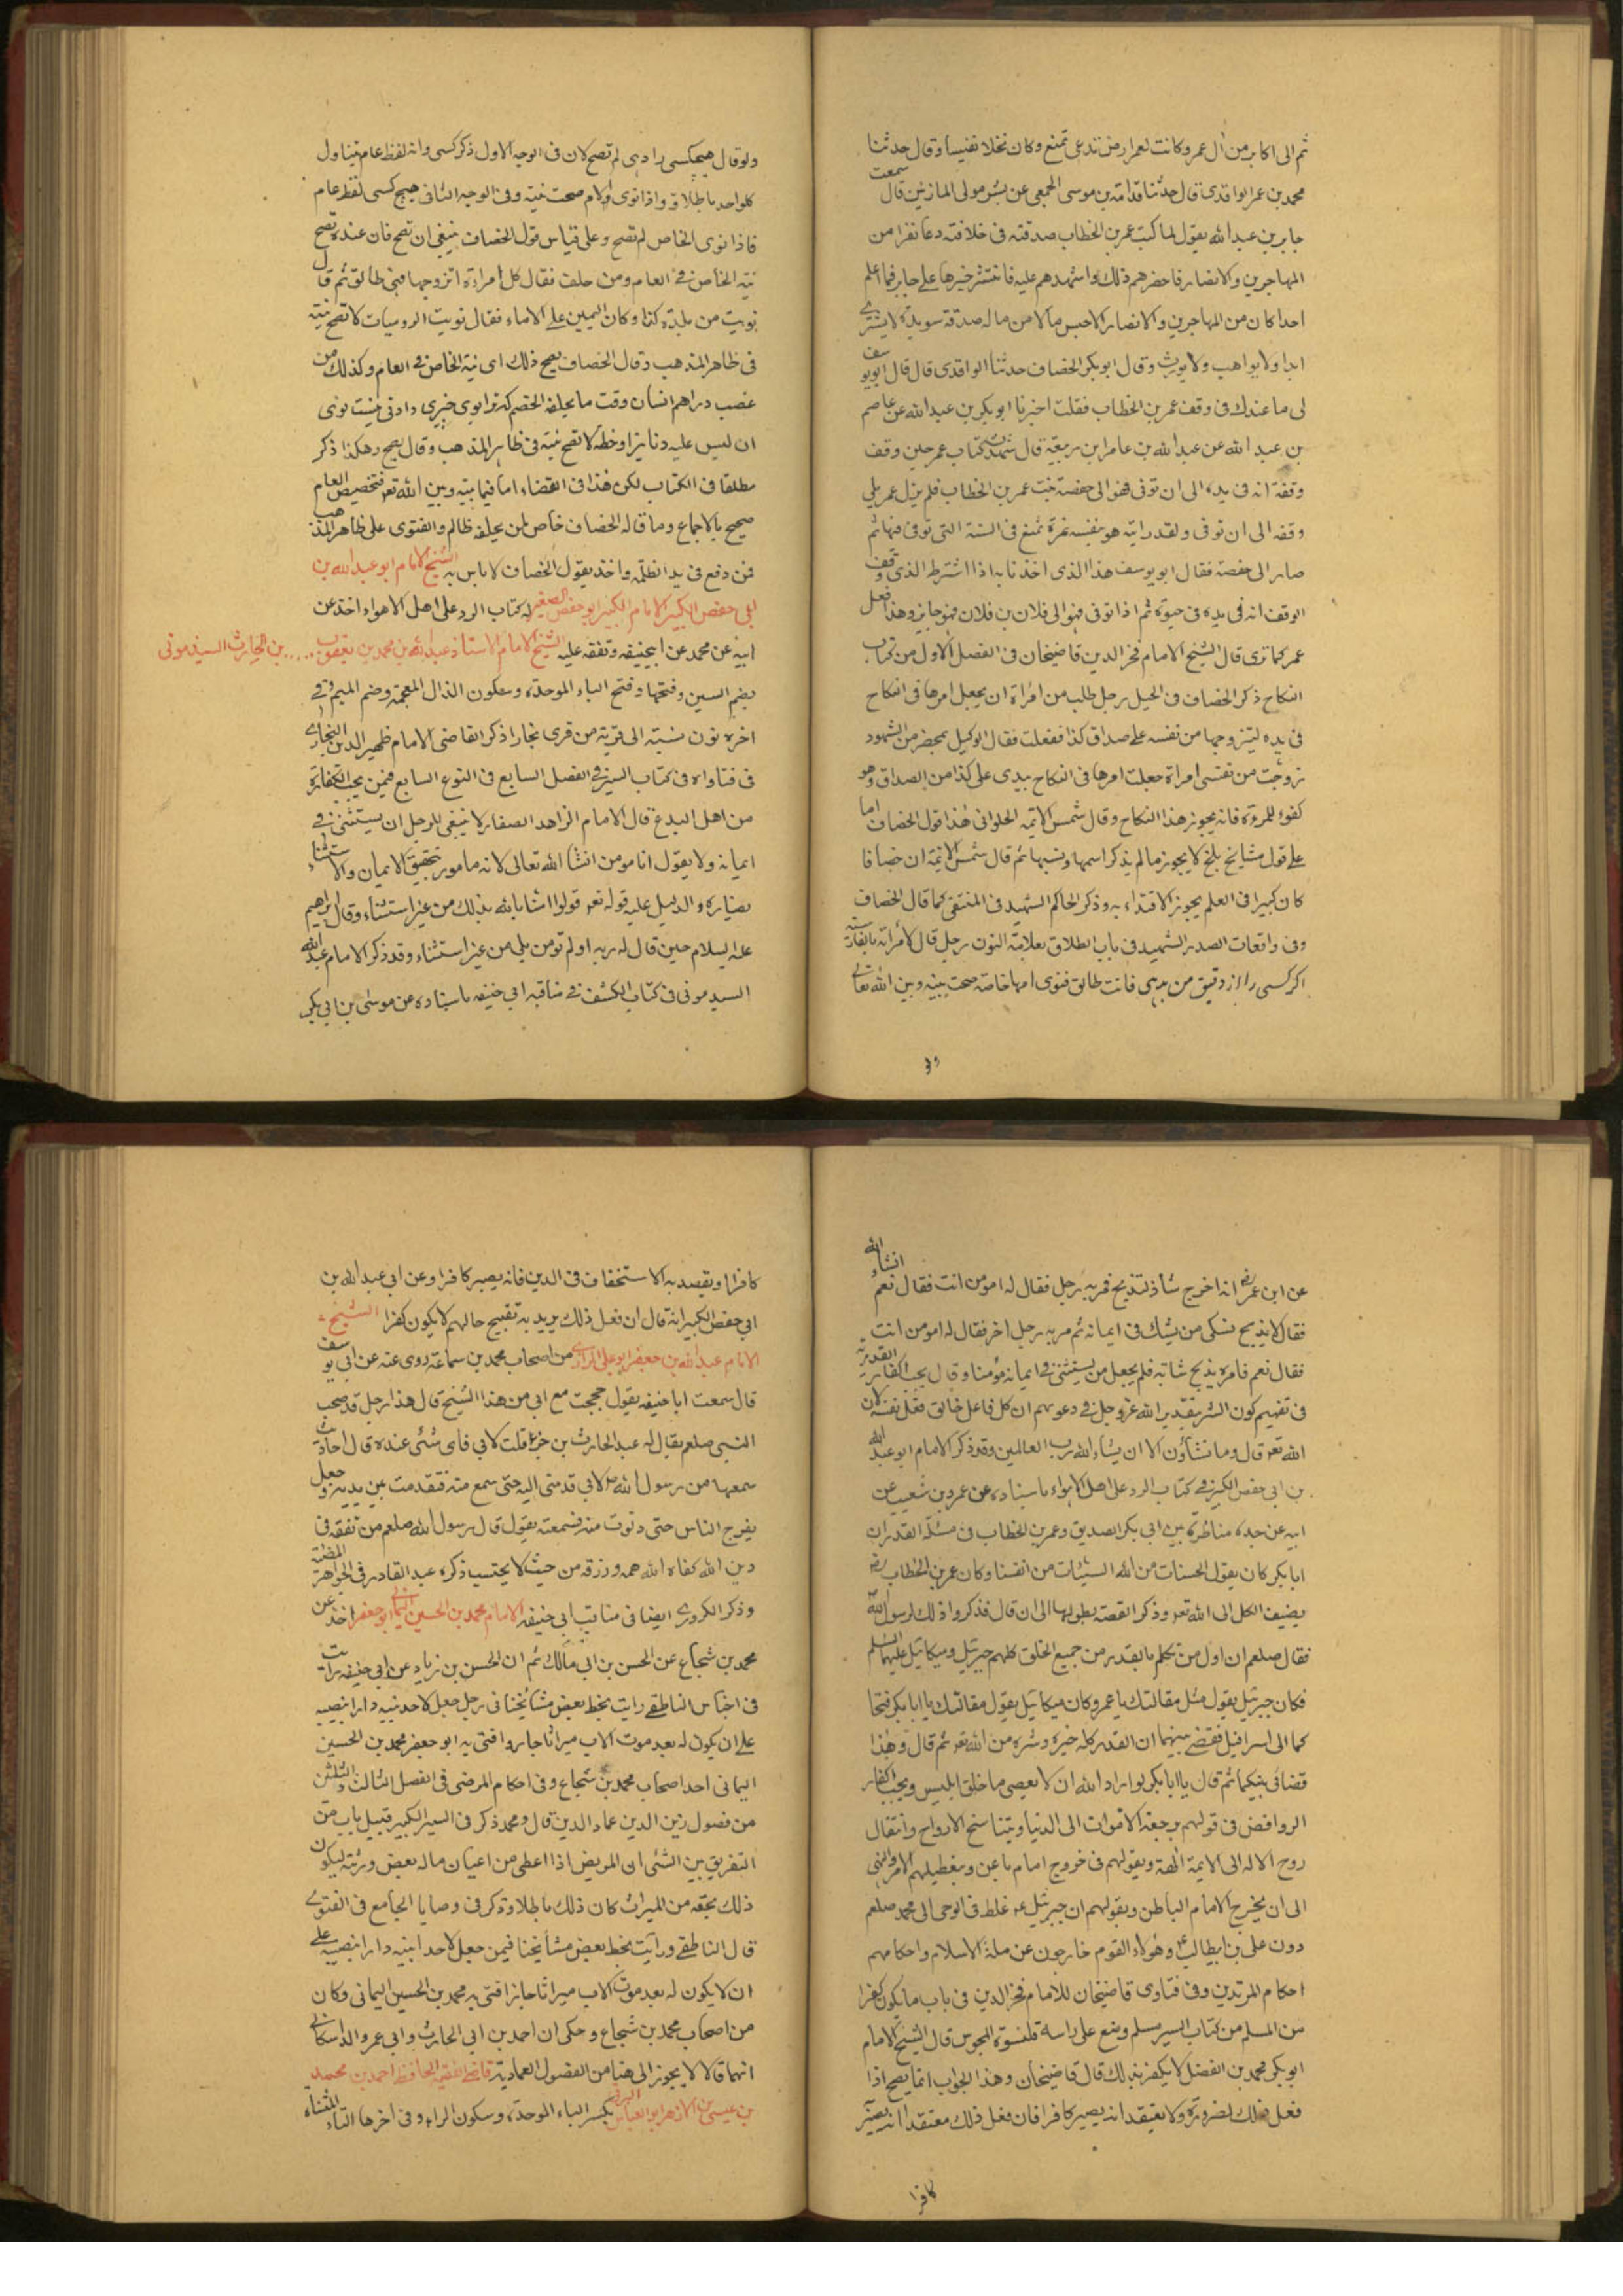 ثم الى اكابر من آل عمر وكانت لعمر ارض تدعى ثمغ وكان نخلا نفيسا وقال حدثنا
محمد بن عمر الواقدى قال حدثنا قدامة بن موسى الجمحى عن بشر مولى المازنين قال سمعت
جابر بن عبد الله يقول لما كتب عمر بن الخطاب صدقته فى خلافته دعا نفرا من
المهاجرين والانصار فاحضرهم ذلك واشهدهم عليه فانتشر خبرها على جابر فما اعلم
احدا كان من المهاجرين والانصار الا حبس مالا من ماله صدقة موبدة لا يشترى
ابدا ولا يواهب ولا يورث وقال ابو بكر الخصاف حدثنا الواقدى قال قال ابو يوسف
لى ما عندك فى وقف عمر بن الخطاب فقلت اخبرنا ابو بكر بن عبد الله عن عاصم
بن عبد الله عن عبد الله بن عامر ابن ربيعة قال شهدت كتاب عمر حين وقف
وقفه انه فى يده الى ان توفى فهو الى حفصة بنت عمر بن الخطاب فلم يزل عمر يلى
وقفه الى ان توفى ولقد رايته هو بنفسه ثمرة ثمغ فى السنة التى توفى فيها ثم
صار الى حفصة فقال ابو يوسف هذا الذى اخذنا به اذا اشترط الذى وقف
الوقف انه فى يده فى حيوته ثم اذا توفى فهو الى فلان بن فلان فهو جايز وهذا فعل
عمر كما ترى قال الشيخ الامام فخر الدين قاضيخان فى الفصل الاول من كتاب
النكاح ذكر الخصاف فى الحيل رجل طلب من امراة ان يجعل امرها فى النكاح
فى يده ليتزوجها من نفسه على صداق كذا ففعلت فقال الوكيل بمحضر من الشهود
زوجت من نفسى امراة جعلت امرها فى النكاح بيدى على كذا من الصداق وهو
كفوء للمرءة فانه يجوز هذا النكاح وقال شمس الائمه الحلوانى هذا قول الخصاف اما
على قول مشايخ بلخ لا يجوز ما لم يذكر اسمها ونسبها ثم قال شمس الائمة ان خصافا
كان كبيرا فى العلم يجوز الاقتداء به وذكر الحاكم الشهيد فى المنتقى كما قال الخصاف
وفى واقعات الصدر الشهيد فى باب الطلاق بعلامة النون رجل قال لامراته بالفارسية
اكر كسى را از وقيق من بدهى فانت طالق فنوى امها خاصة صحت بينه وبين الله تعالى
ولو
ولو قال هيچكسى را دهى لم تصح لان فى الوجه الاول ذكر كسى وانه لفظ عام يتناول
كل واحد باطلاق واذا نوى الام صحت نيته وفى الوجه الثانى هيچ كسى لفظ عام
فاذا نوى الخاص لم تصح وعلى قياس قول الخصاف ينبغى ان تصح فان عنده تصح
نية الخاص فى العام ومن حلف فقال كل امراة اتزوجها فهى طالق ثم قال
نويت من بلدة كذا وكان اليمين على الاماء فقال نويت الروميات لا تصح نيته
فى ظاهر المذهب وقال الخصاف يصح ذلك اى نية الخاص فى العام وكذلك من
غصب دراهم انسان وقت ما يحلفه الخصم كه ترا بوى چيزى دادنى نيست نوى
ان ليس عليه دنانيرا وحطه لا تصح نيته فى ظاهر المذهب وقال يصح وهكذا ذكر
مطلقا فى الكتاب لكن هذا فى القضاء اما فيما بينه وبين الله تعو فتخصيص العام
صحيح بالاجماع وما قاله الخصاف خاص لمن يحلفه ظالم والفتوى على ظاهر المذهب
فمن دفع فى يد الظلمة واخذ بقول الخصاف لا باس به الشيخ الامام ابو عبد الله بن
ابى حفص الكبير الامام الكبير ابو حفص الصغير له كتاب الرد على اهل الاهواء اخذ عن
ابيه عن محمد عن ابيحنيفه وتفقه عليه الشيخ الامام الاستاذ عبد الله بن محمد بن يعقوب ..... بن الحارث السبذمونى
بضم السين وفتحها وفتح الباء الموحدة وسكون الذال المعجمة وضم الميم وفى
اخره نون نسبته الى قرية من قرى بخارا ذكر القاضى الامام ظهير الدين البخارى
فى فتاواه فى كتاب السير فى الفصل السابع فى النوع السابع فيمن يجب اكفاره
من اهل البدع قال الامام الزاهد الصفار لا ينبغى للرجل ان يستثنى فى
ايمانه ولا يقول انا مومن انشا الله تعالى لانه مامور بتحقيق الايمان والاستثناء
يضاره والدليل عليه قوله تعو قولوا امنا بالله بذلك من غير استثناء وقال ابراهيم
عليه السلام حين قال له ربه اولم تومن بلى من غير استثناء وقد ذكر الامام عبد الله
السبذمونى فى كتاب الكشف فى مناقبه ابى حنيفه باسناده عن موسى بن ابى بكر
عن ابن عمر رض انه اخرج شاة لتذبح فمر به رجل فقال له امومن انت فقال نعم انشاء الله
فقال لا يذبح نسكى من يشك فى ايمانه ثم مر به رجل اخر فقال له امومن انت
فقال نعم فامره بذبح شاته فلم يجعل من يستثنى فى ايمانه مؤمنا وقال يجب اكفار القدرية
فى نفيهم كون الشر بتقدير الله عز وجل وفى دعويهم ان كل فاعل خالق فعل نفسه لان
الله تعو قال وما تشاؤن الا ان يشاء الله رب العالمين وقد ذكر الامام ابو عبد الله
بن ابى حفص الكبير فى كتاب الرد على اهل الاهواء باسناده عن عمرو بن شعيب عن
ابيه عن جده مناظرة بين ابى بكر الصديق وعمر بن الخطاب فى مسئلة القدر ان
ابا بكر كان يقول الحسنات من الله السيئات من انفسنا وكان عمر بن الخطاب رض
يضيف الكل الى الله تعو وذكر القصة بطولها الى ان قال فذكروا ذلك لرسول الله
فقال صلعم ان اول من تكلم بالقدر من جميع الخلق كلهم جبرئيل وميكائيل عليهما السلم
فكان جبرئيل يقول مثل مقالتك يا عمر وكان ميكائيل يقول مقالتك يا ابا بكر فتحا
كما الى اسرافيل فقضى بينهما ان القدر كله خيره وشره من الله تعو ثم قال وهذا
قضائى بينكما ثم قال يا ابا بكر لو اراد الله ان لا يعصى ما خلق ابليس ويجب اكفار
الروافض فى قولهم برجعة الاموات الى الدنيا وبتناسخ الارواح وانتقال
روح الاله الى الائمة الهة وبقولهم فى خروج امام باطن وبتعطيلهم الامر والنهى
الى ان يخرج الامام الباطن وبقولهم ان جبرئيل عم غلط فى الوحى الى محمد صلعم
دون على بن ابيطالب وهولاء القوم خارجون عن ملة الاسلام واحكامهم
احكام المرتدين وفى فتاوى قاضيخان للامام فخر الدين فى باب ما يكون كفرا
من المسلم من كتاب السير مسلم وضع على راسه قلنسوة المجوس قال الشيخ الامام
ابو بكر محمد بن الفضل لا يكفر بذلك قال قاضيخان وهذا الجواب انما يصح اذا
فعل ذلك لضرورة ولا يعتقد انه يصير كافرا فان فعل ذلك معتقدا انه يصير
كافرا
كافرا ويقصد به الاستخفاف فى الدين فانه يصير كافرا وعن ابى عبد الله بن
ابى حفص الكبير انه قال ان فعل ذلك يريد به تقبيح حالهم لا يكون كفرا الشيخ
الامام عبد الله بن جعفر ابو على الرازى من اصحاب محمد بن سماعة روى عنه عن ابى يوسف
قال سمعت ابا حنيفه يقول حججت مع ابى من هذا الشيخ قال هذا رجل قد صحب
النبى صلعم يقال له عبد الحارث بن جزء قلت لابى فاى شئى عنده قال احاديث
سمعها من رسول الله صل لابى قدمنى اليه حتى سمع منه فتقدمت بين يديه وجعل
يفرج الناس حتى دنوت منه فسمعته يقول قال رسول الله صلعم من تفقه فى
دين الله كفاه الله همه ورزقه من حيث لا يحتسب ذكره عبد القادر فى الجواهر المضئة
وذكر الكرورى ايضا فى مناقب ابى حنيفه الامام محمد بن الحسين اليمانى ابو جعفر اخذ عن
محمد بن شجاع عن الحسن بن ابى مالك ثم ان الحسن بن زياد عن ابى حنيفه رايت
فى اجناس الناطقى رايت بخط بعض مشايخنا فى رجل جعل لاحد بنيه دارا بنصيبه
على ان يكون له بعد موت الاب ميراثا جاز وافتى به ابو جعفر محمد بن الحسين
اليمانى احد اصحاب محمد بن شجاع وفى احكام المرضى فى الفصل الثالث والثلثين
من فصول زين الدين عماد الدين قال ومحمد ذكر فى السير الكبير قبيل باب من
التفريق بين الشئى ان المريض اذا اعطى من اعيان ماله بعض ورثته ليكون
ذلك بحقه من الميراث كان ذلك باطلا وذكر فى وصايا الجامع فى الفتوى
قال الناطقى ورايت بخط بعض مشايخنا فيمن جعل لاحد ابنيه دارا بنصيبه على
ان لا يكون له بعد موت الاب ميراثا جاز افتى به محمد بن الحسين اليمانى وكان
من اصحاب محمد بن شجاع وحكى ان احمد بن ابى الحارث وابى عمرو الداسكانى
انهما قالا لا يجوز الى هنا من الفصول العمادية قاضى الفقيه الحافظ احمد بن محمد
بن عيسى بن الازهر ابو العباس البرتى بكسر الباء الموحدة وسكون الراء وفى اخرها التاء المثناة